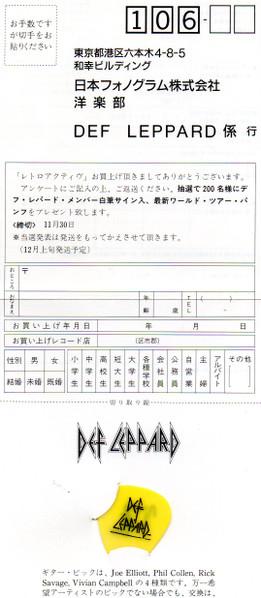 お手数です
が切手をお
貼りください
106-
東京都港区六本木4-8-5
和幸ビルディング
日本フォノグラム株式会社
洋楽部
DEF LEPPARD 係 行
「レトロアクティヴ」お買上げ頂きましてありがとうございます。
アンケートにご記入の上、ご返送ください。抽選で200名様にデ
フ・レパード・メンバー自筆サイン入、最新ワールド・ツアー・パ
ンフをプレゼント致します。
〈締切〉 11月30日
※当選発表は発送をもってかえさせて頂きます。
(12月上旬発送予定)
おところ 〒
おなまえ 年齢 歳 TEL ( ) -
お買い上げ年月日 年 月 日
お買い上げレコード店 (区市郡)
性別 男 女 小学生 中学生 高校生 短大生 大学生 各種学校 会社員 公務員 自営業 主婦 アルバイト その他
結婚 未婚 既婚
切り取り線
DEF LEPPARD
DEF
LEPPARD
ギター・ピックは、Joe Elliott, Phil Collen, Rick
Savage, Vivian Campbell の4種類です。万一希
望アーティストのピックでない場合でも、交換は、